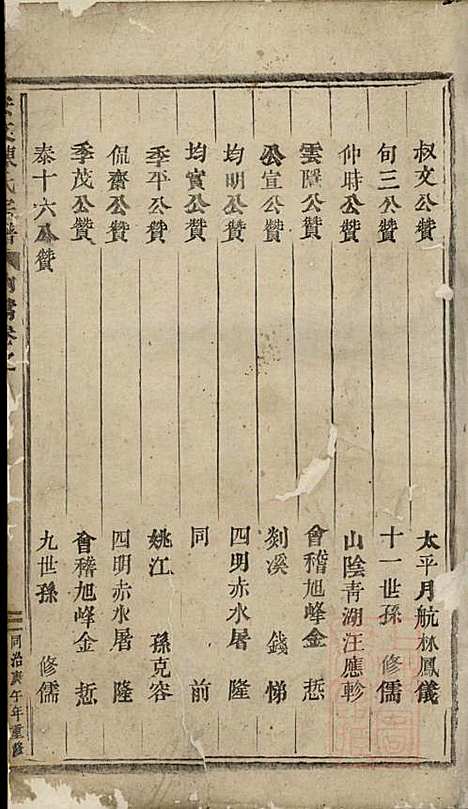 叔文公贊 太平月航林鳳儀
旬三公贊 十一世孫 修儒
仲時公贊 山陰靑湖汪應軫
雲隱公贊 會稽旭峰金 悊
公宣公贊 剡溪 錢悌
均明公贊 四明赤水屠 隆
均實公贊 同 前
季平公贊 姚江 孫克容
侃齋公贊 四明赤水屠 隆
季茂公贊 會稽旭峰金 悊
泰十六公贊 九世孫 修儒
陳氏宗譜 卷之
同治庚午年重修